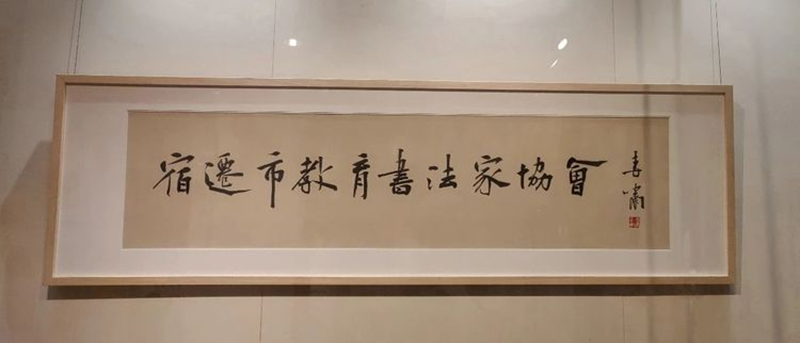 宿遷市教育書法家協會
春嘯